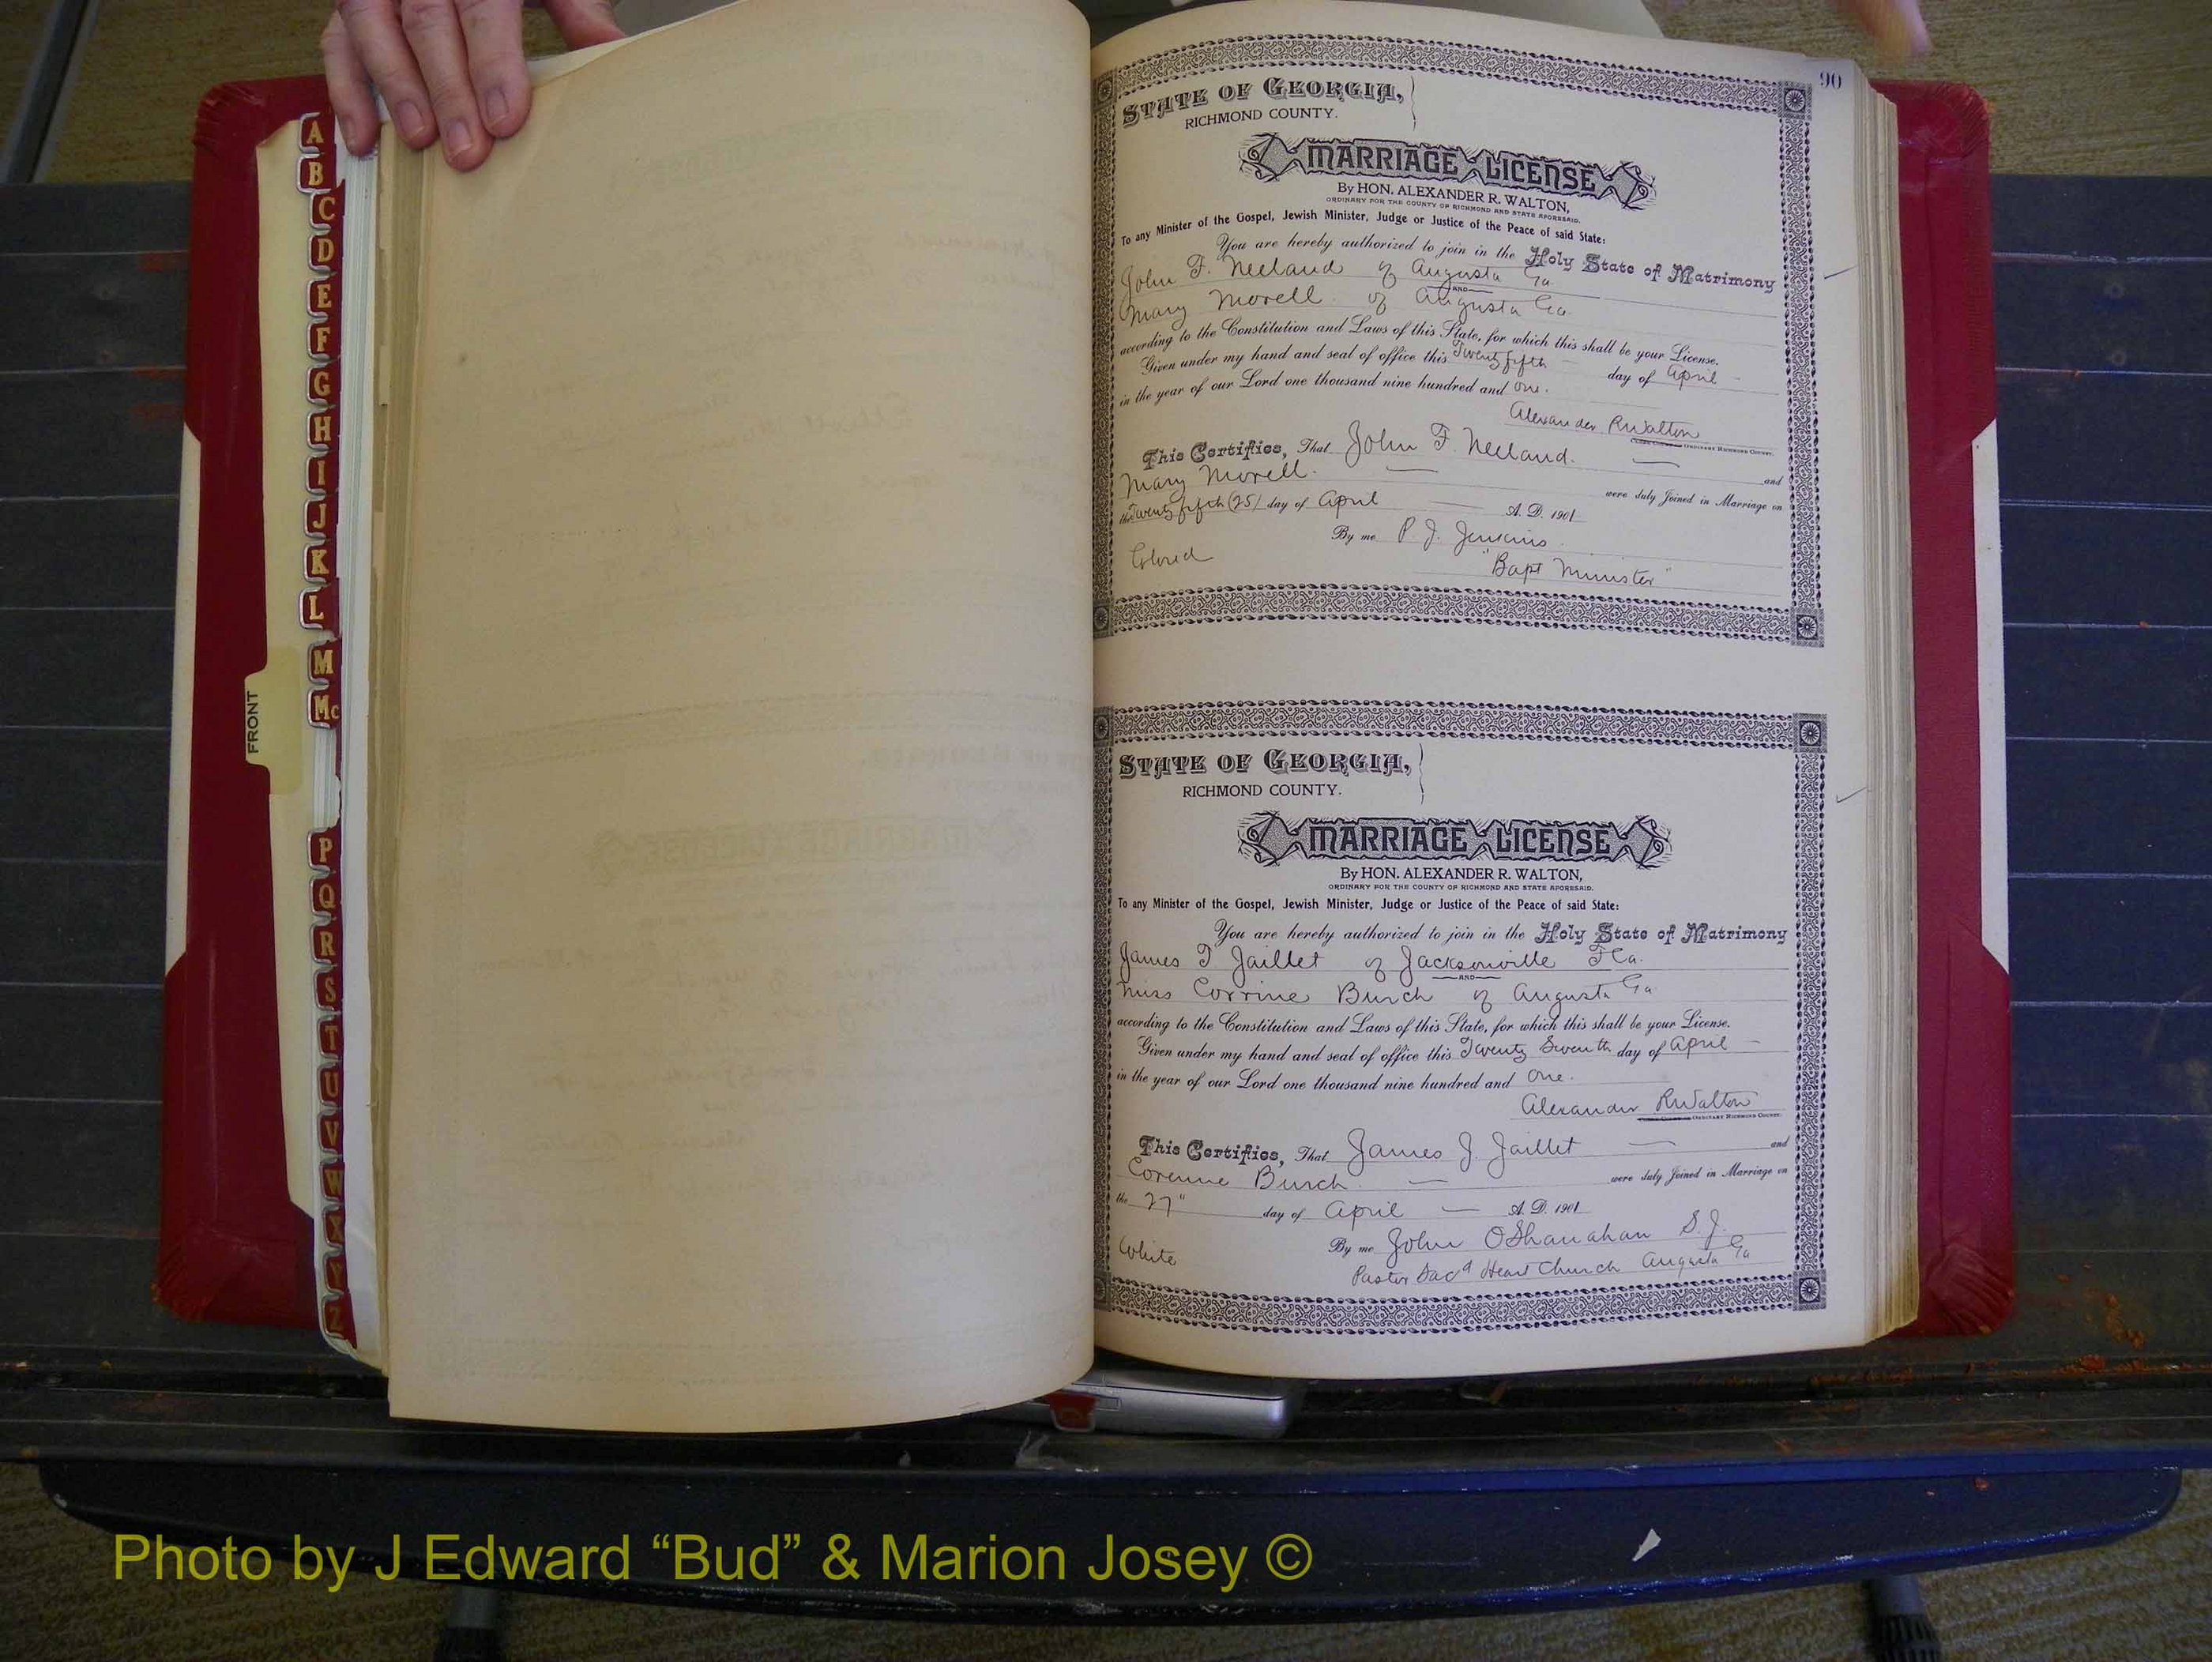 A
B
C
D
E
F
G
H
I
J
K
L
M
Mc
P
Q
R
S
T
U
V
W
X
Y
Z
FRONT
90
STATE OF GEORGIA,
RICHMOND COUNTY.
MARRIAGE LICENSE
By HON. ALEXANDER R. WALTON,
ORDINARY FOR THE COUNTY OF RICHMOND AND STATE AFORESAID.
To any Minister of the Gospel, Jewish Minister, Judge or Justice of the Peace of said State:
You are hereby authorized to join in the Holy State of Matrimony
John F. Neeland of Augusta Ga.
AND
Mary Morell of Augusta Ga.
according to the Constitution and Laws of this State, for which this shall be your License.
Given under my hand and seal of office this Twenty fifth day of April
in the year of our Lord one thousand nine hundred and one.
Alexander R Walton
ORDINARY RICHMOND COUNTY.
This Certifies, That John F. Neeland. and
Mary Morell. were duly Joined in Marriage on
the Twenty fifth (25) day of April A. D. 1901
By me P. J. Jenkins
Colored "Bapt Minister"
STATE OF GEORGIA,
RICHMOND COUNTY.
MARRIAGE LICENSE
By HON. ALEXANDER R. WALTON,
ORDINARY FOR THE COUNTY OF RICHMOND AND STATE AFORESAID.
To any Minister of the Gospel, Jewish Minister, Judge or Justice of the Peace of said State:
You are hereby authorized to join in the Holy State of Matrimony
James J Jaillet of Jacksonville Fla.
AND
Miss Corrine Burch of Augusta Ga
according to the Constitution and Laws of this State, for which this shall be your License.
Given under my hand and seal of office this Twenty Seventh day of April
in the year of our Lord one thousand nine hundred and One.
Alexander R Walton
ORDINARY RICHMOND COUNTY.
This Certifies, That James J. Jaillet and
Corenne Burch. were duly Joined in Marriage on
the 27" day of April A. D. 1901
By me John OShanahan S. J.
White Pastor Sacd Heart Church Augusta Ga
Photo by J Edward “Bud” & Marion Josey ©